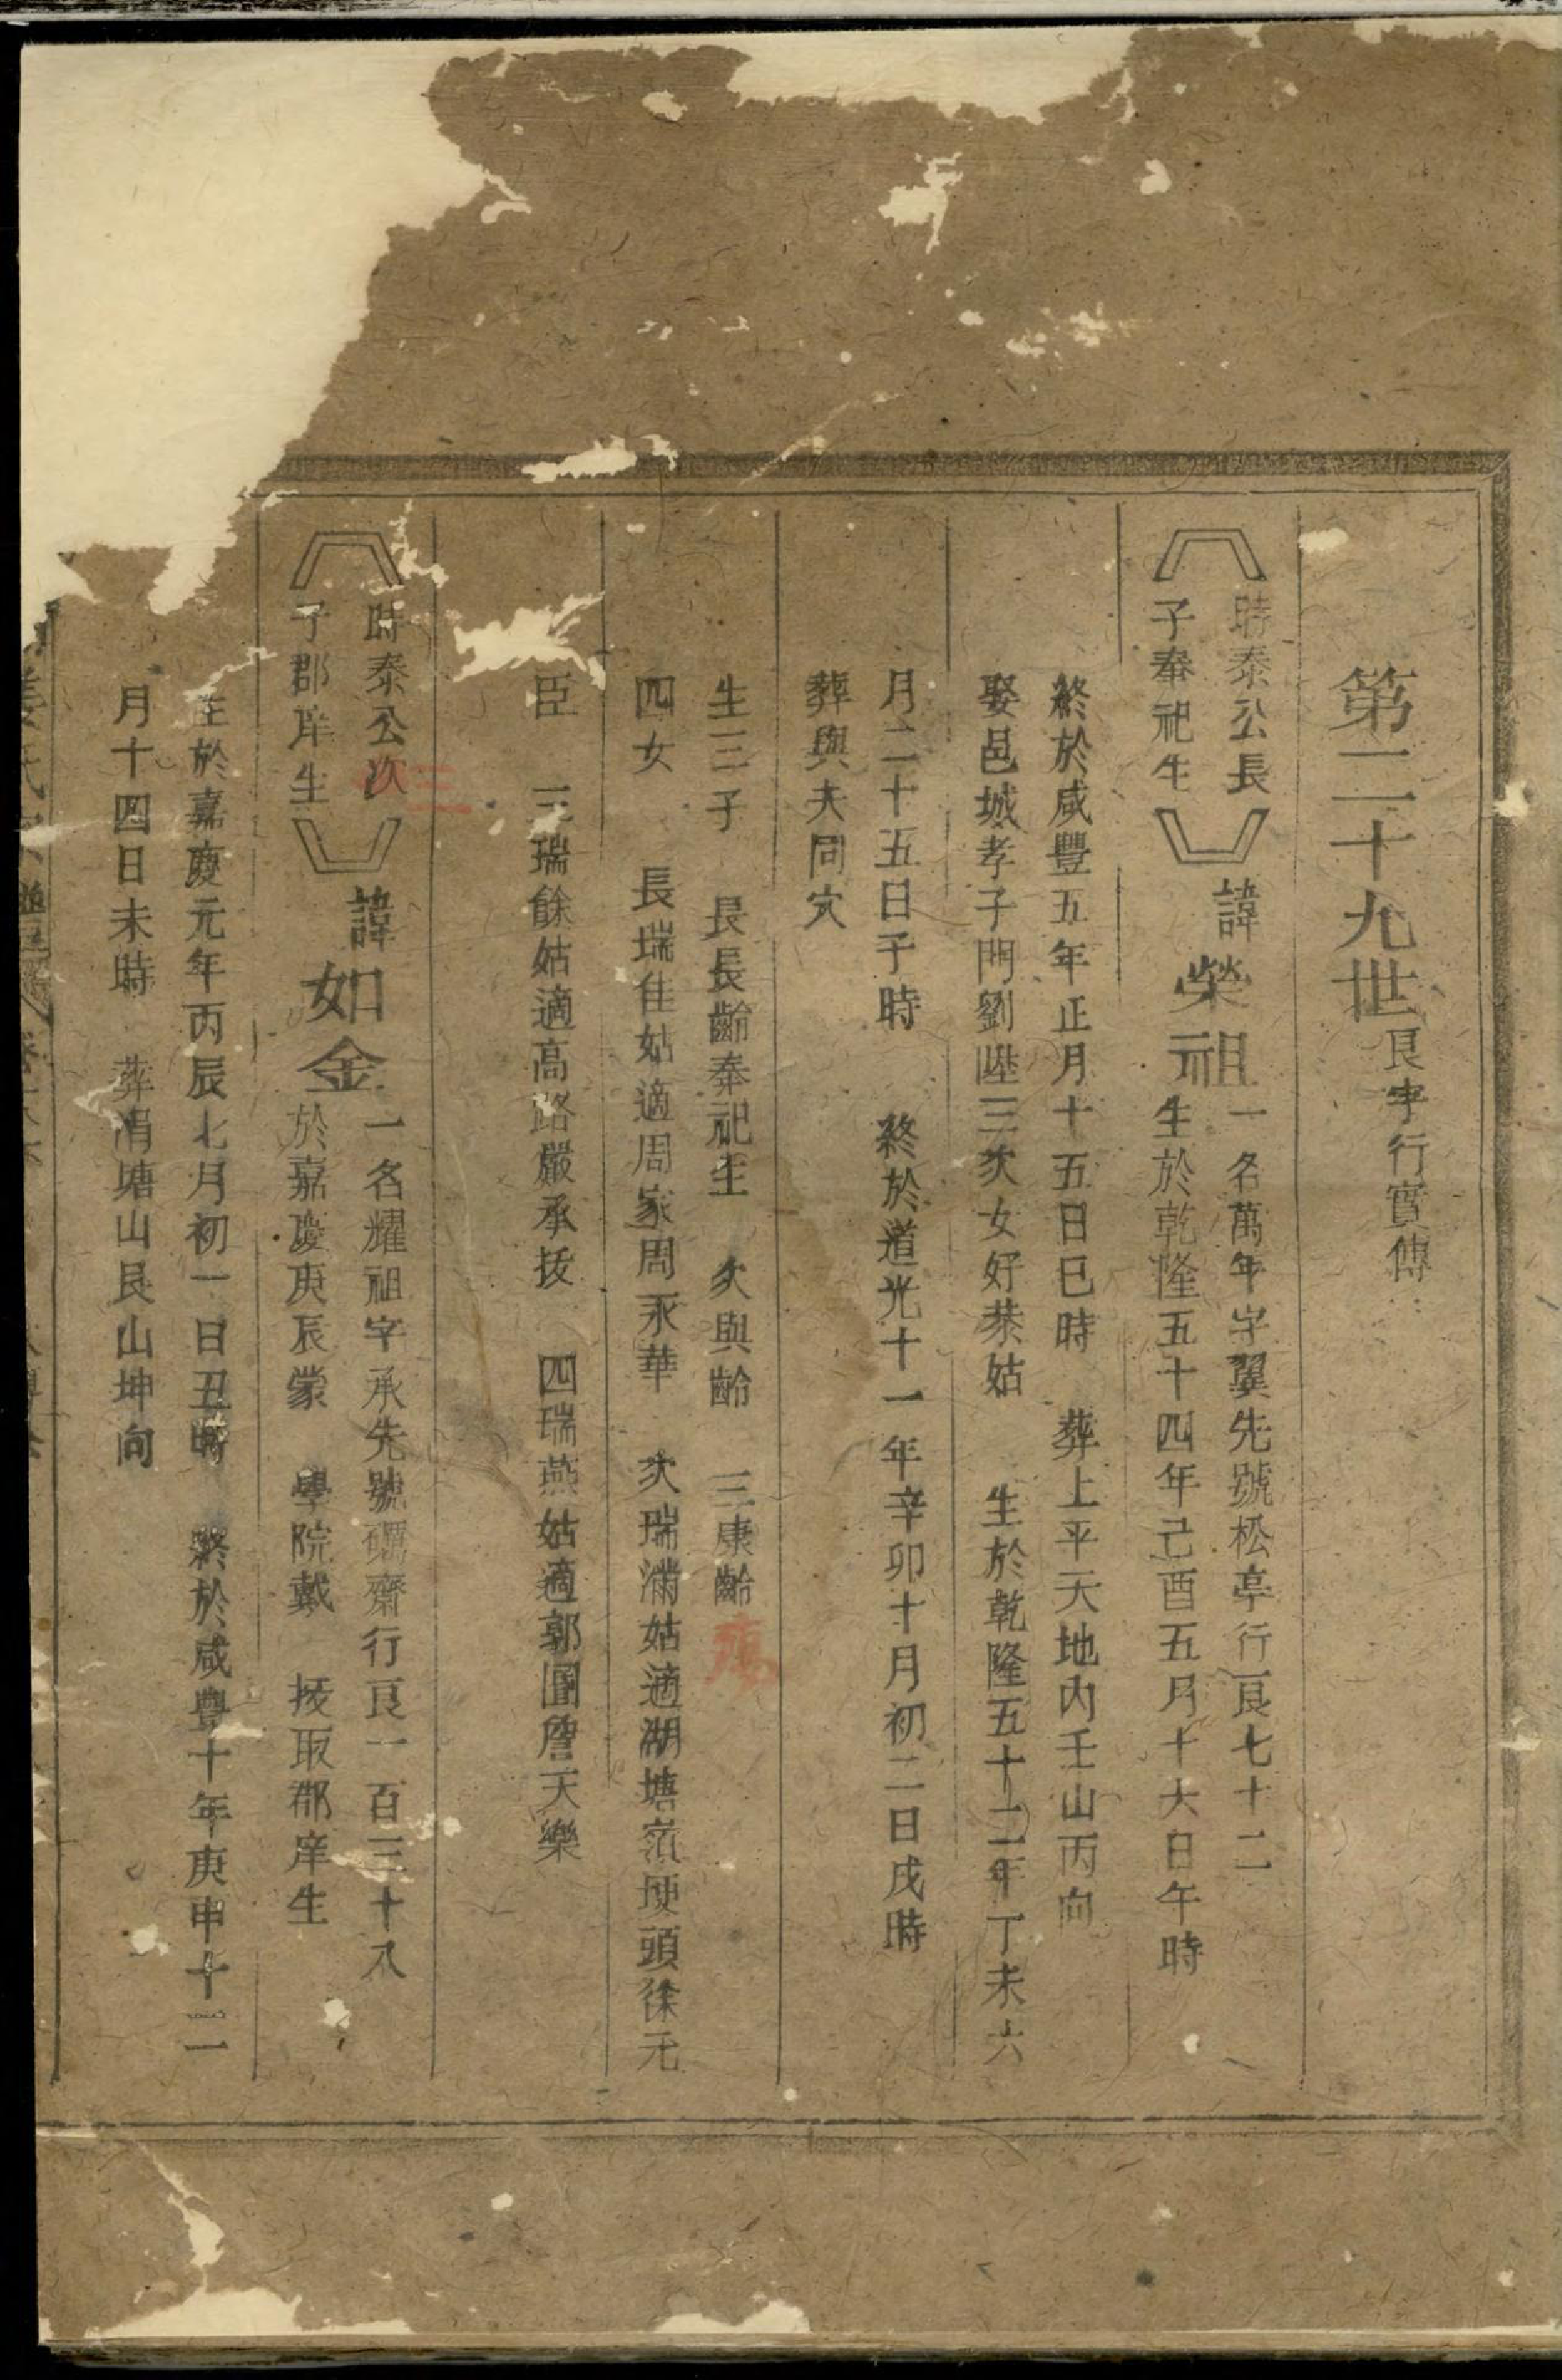 第二十九世艮字行實傳
時泰公長
子奉祀生
諱
榮祖
一名萬年字翼先號松亭行艮七十二
生於乾隆五十四年己酉五月十六日午時
終於咸豐五年正月十五日巳時　葬上平天地內壬山丙向
娶邑城孝子門劉陞三次女好恭姑　生於乾隆五十二年丁未六
月二十五日子時　終於道光十一年辛卯十月初二日戌時
葬與夫同穴
生三子　長長齡奉祀生　次與齡　三康齡殤
四女　長瑞佳姑適周家周永華　次瑞滿姑適湖塘嶺埂頭徐元
臣　三瑞餘姑適高路嚴承拔　四瑞燕姑適郭圊詹天樂
時泰公次
子郡庠生
三
諱
如金
一名耀祖字承先號礪齋行艮一百三十八
於嘉慶庚辰蒙　學院戴　拔取郡庠生
生於嘉慶元年丙辰七月初一日丑時　終於咸豐十年庚申十二
月十四日未時　葬涓塘山艮山坤向